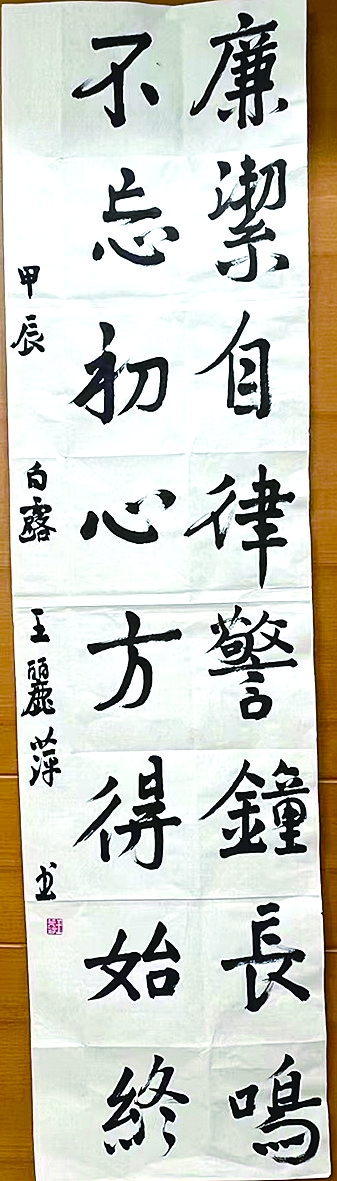 廉潔自律警鐘長鳴
不忘初心方得始終
甲辰 白露 王麗萍 书